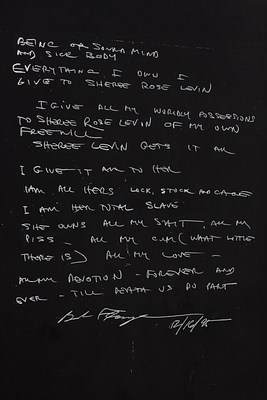 BEING OF SOUND MIND
AND SICK BODY
EVERYTHING I OWN I
GIVE TO SHEREE ROSE LEVIN
I GIVE ALL MY WORLDLY POSSESSIONS
TO SHEREE ROSE LEVIN OF MY OWN
FREEWILL
SHEREE LEVIN GETS IT ALL
I GIVE IT ALL TO HER
I AM ALL HERS LOCK, STOCK AND
I AM HER TOTAL SLAVE
SHE OWNS ALL MY SHIT, ALL MY
PISS - ALL MY CUM (WHAT LITTLE
THERE IS) ALL MY LOVE -
ALL MY DEVOTION - FOREVER AND
EVER - TILL DEATH US DO PART
12/16/95